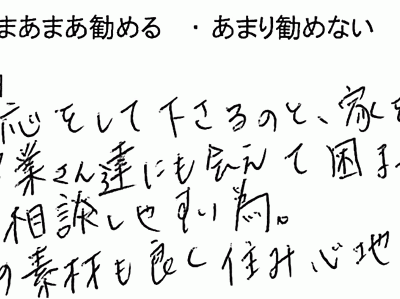 まあまあ勧める ・あまり勧めない
応をして下さるのと、家を
業さん達にも会えて困
相談しやすい為。
の素材も良く住み心地